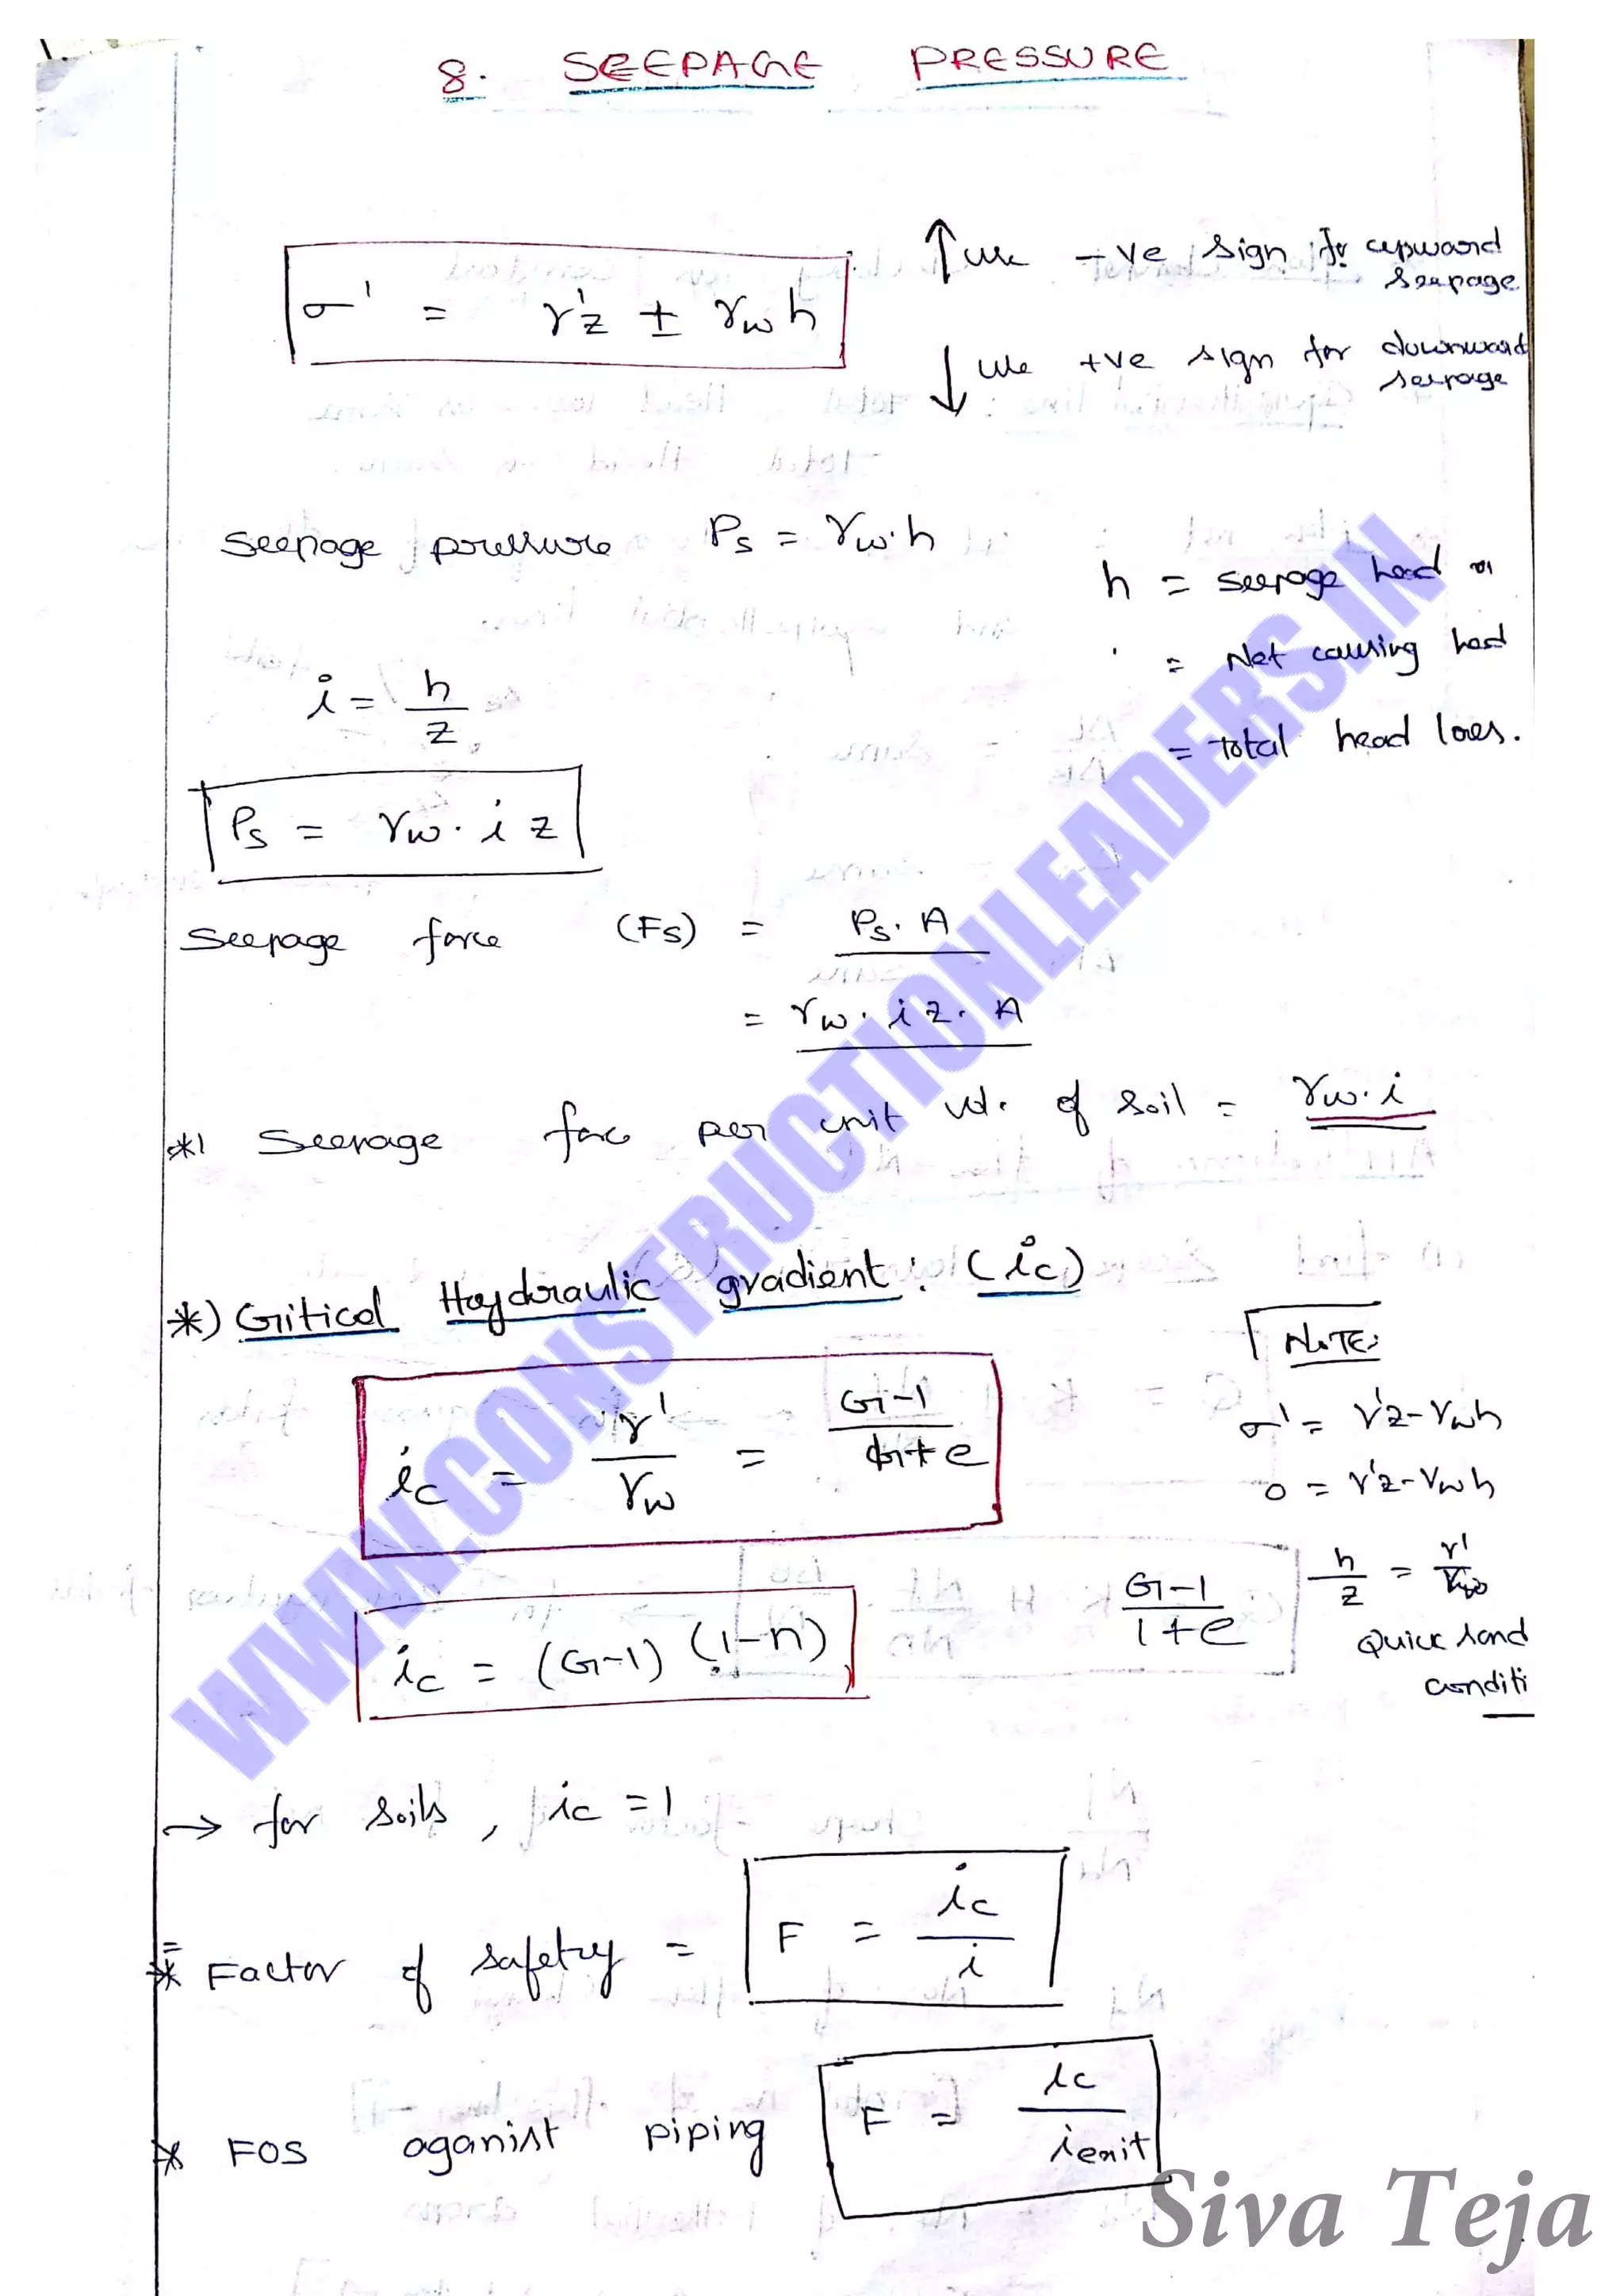 8. SEEPAGE PRESSURE
σ' = γ'z ± γw h
↑ use -ve sign for upward seepage
↓ use +ve sign for downward seepage
Seepage pressure Ps = γw.h
h = seepage head or
= Net causing head
= total head loss.
i = h/z
Ps = γw. i z
Seepage force (Fs) = Ps. A
= γw. i z. A
*) Seepage force per unit vol. of soil = γw. i
*) Critical Haydraulic gradient: (ic)
NOTE:
ic = γ'/γw = G-1/1+e
σ' = γ'z-γwh
0 = γ'z-γwh
h/z = γ'/γw
Quick sand
conditi
G-1/1+e
ic = (G-1) (1-n)
→ for soils, ic = 1
* Factor of safety = F = ic/i
* FOS aganist piping F = ic/iexit
WWW.CONSTRUCTIONLEADERS.IN
Siva Teja